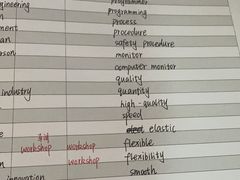 programmer
gineering programming
process
ment procedure
an safety procedure
erson monitor
computer monitor
quality
industry quantity
high-quality
speed
elastic
workshop workshop flexible
workshop flexibility
innovation smooth